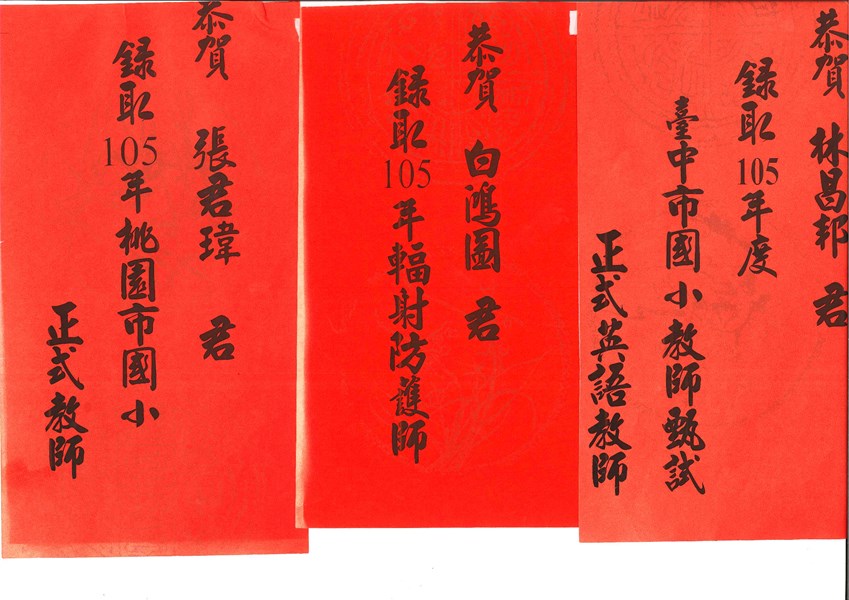 恭賀 林昌邦 君
錄取105年度
臺中市國小教師甄試
正式英語教師
恭賀 白鴻圖 君
錄取105年輻射防護師
恭賀 張君瑋 君
錄取105年桃園市國小
正式教師